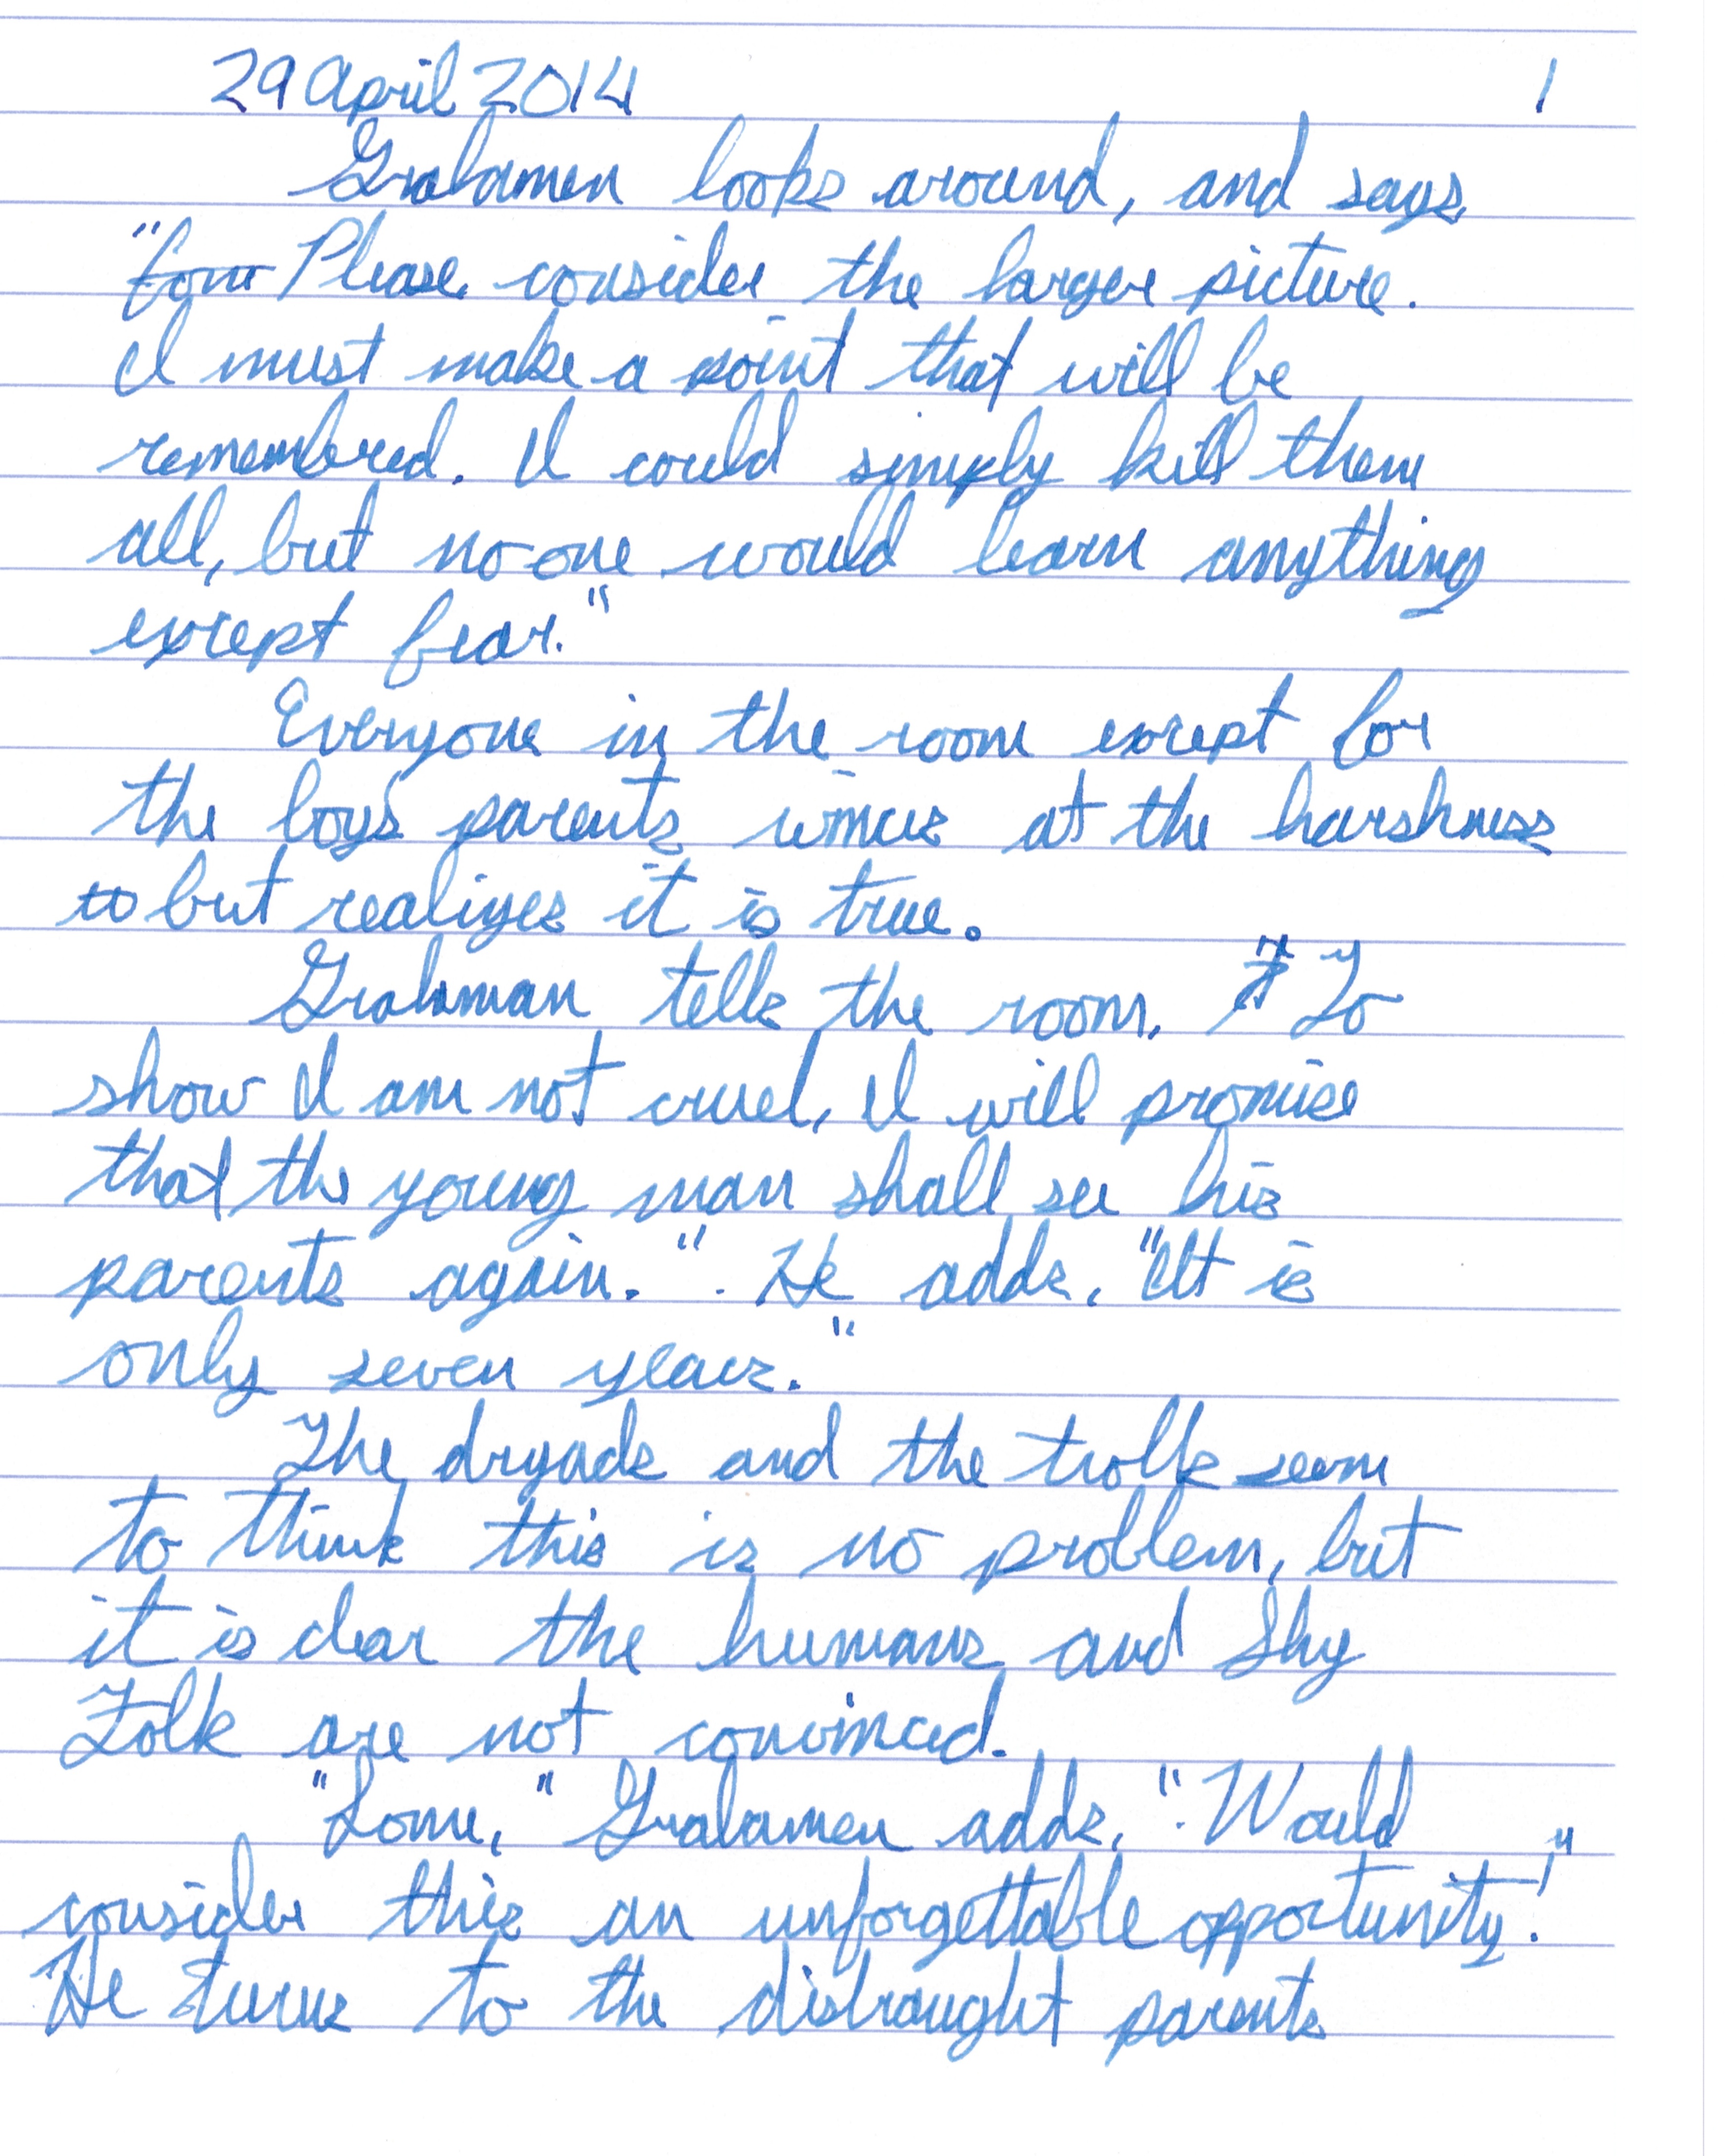 29 April 2014 1
Gralamen looks around, and says,
"Please consider the larger picture.
I must make a point that will be
remembered. I could simply kill them
all, but no one would learn anything
except fear."
Everyone in the room except for
the boy's parents winces at the harshness
to but realizes it is true.
Gralaman tells the room, " To
show I am not cruel, I will promise
that the young man shall see his
parents again.". He adds, "It is
only seven years."
The dryads and the trolls seem
to think this is no problem, but
it is clear the humans and Shy
Folk are not convinced.
"Some," Gralamen adds, "Would
consider this an unforgettable opportunity!"
He turns to the distraught parents